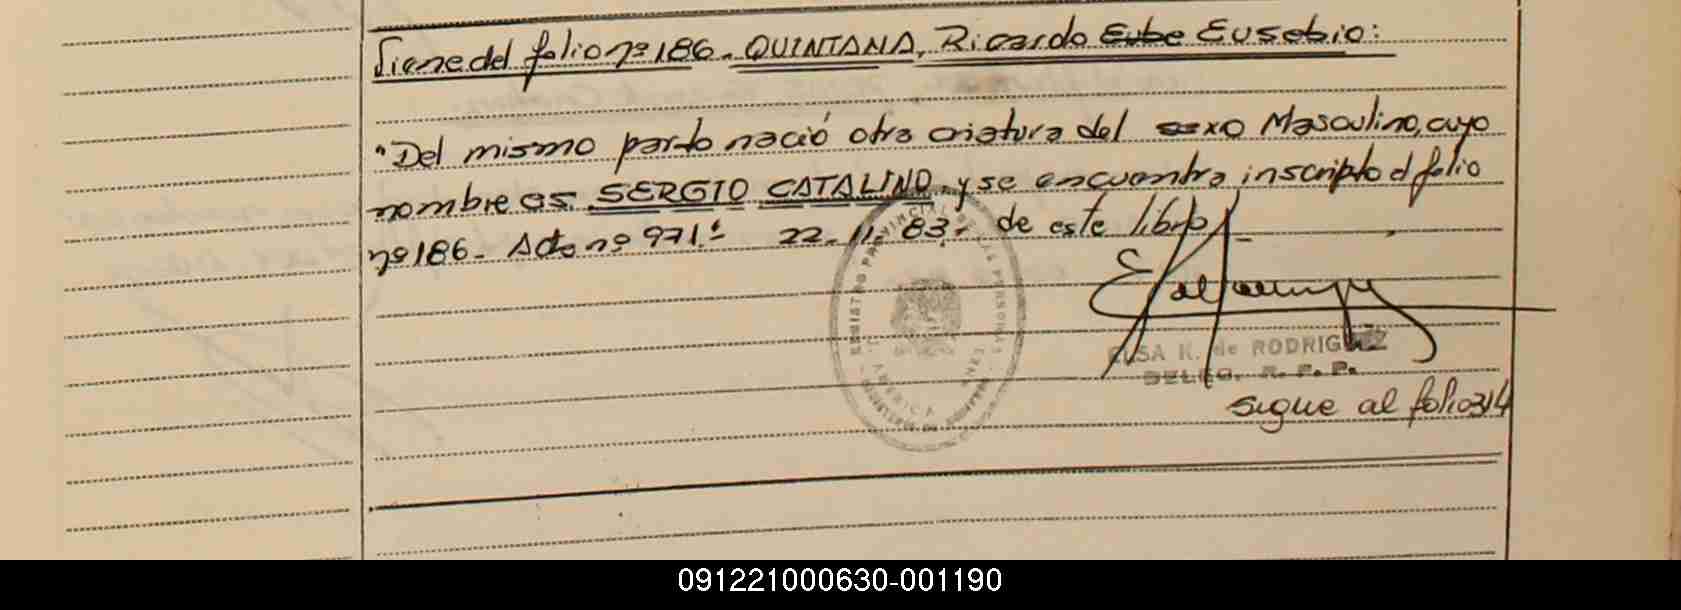 Viene del folio nº 186. QUINTANA, Ricardo Eube Eusebio:
"Del mismo parto nació otra criatura del sexo Masculino, cuyo
nombre es SERGIO CATALINO y se encuentra inscripto al folio
nº 186. Acta nº 971. 22.11.83. de este libro
REGISTRO PROVINCIAL DE LAS PERSONAS
ELSA K. de RODRIGUEZ
DELEG. R. P. P.
sigue al folio 314
091221000630-001190